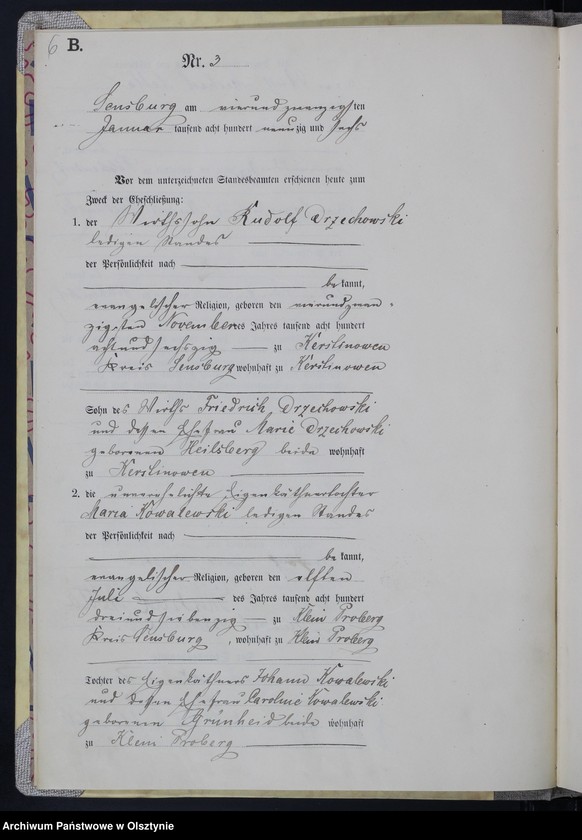 6 B.
Nr. 3
Sensburg am vierundzwanzigsten
Januar tausend acht hundert neunzig und sechs
Vor dem unterzeichneten Standesbeamten erschienen heute zum
Zweck der Eheschließung:
1. der Wirthssohn Rudolf Drzechowski
ledigen Standes
der Persönlichkeit nach
be kannt,
evangelischer Religion, geboren den vierundzwan-
zigsten November des Jahres tausend acht hundert
achtundsechszig zu Kerstinowen
Kreis Sensburg wohnhaft zu Kerstinowen
Sohn des Wirths Friedrich Drzechowski
und dessen Ehefrau Marie Drzechowski
geborenen Heilsberg beide wohnhaft
zu Kerstinowen
2. die unverehelichte Eigenkäthnertochter
Maria Kowalewski ledigen Standes
der Persönlichkeit nach
be kannt,
evangelischer Religion, geboren den elften
Juli des Jahres tausend acht hundert
dreiundsiebenzig zu Klein Proberg
Kreis Sensburg, wohnhaft zu Klein Proberg
Tochter des Eigenkäthners Johann Kowalewski
und dessen Ehefrau Caroline Kowalewski
geborenen Grünheid beide wohnhaft
zu Klein Proberg
Archiwum Państwowe w Olsztynie